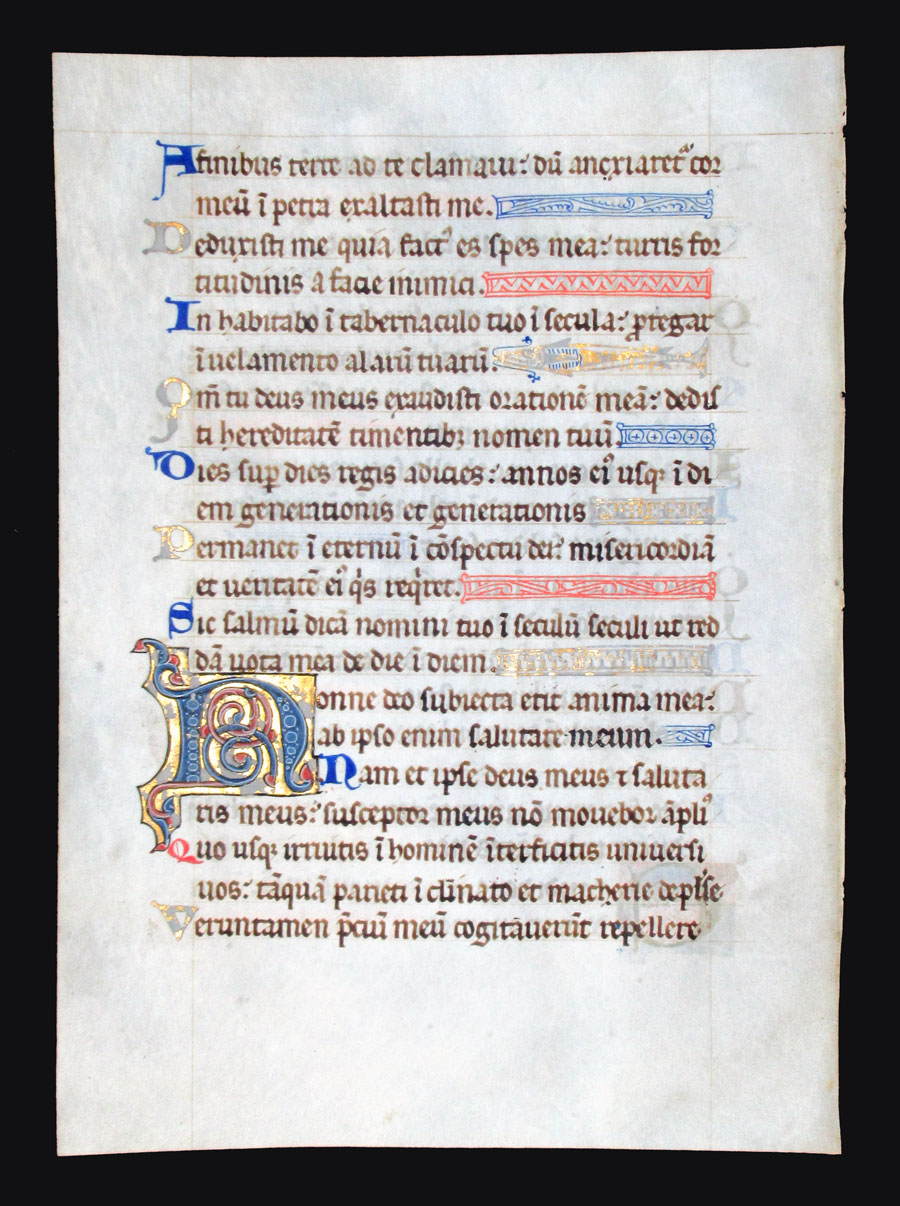 Afinibus terre ad te clamaui: dū anxiaretᵃ cor
meū ī petra exaltasti me.
Deduxisti me quia factꝰ es spes mea: turris for
titudinis a facie inimici.
In habitabo ī tabernaculo tuo ī secula: ꝓtegar
ī uelamento alarū tuarū
Qm̄ tu deus meus exaudisti orationē meā: dedis
ti hereditatē timentibꝫ nomen tuū.
Dies suꝑ dies regis adicies: annos eiꝰ usqꝫ ī di
em generationis et generationis
Permanet ī eternū ī cōspectu dei: misericordiā
et ueritatē eiꝰ qͥs reqͥret.
Sic salmū dicā nomini tuo ī seculū seculi ut red
dā uota mea de die ī diem.
Nonne deo subiecta erit anima mea:
ab ipso enim salutare meum.
Nam et ipse deus meus ⁊ saluta
ris meus: susceptor meus nō mouebor āpliꝰ
Quo usqꝫ irruitis ī hominē īterficitis uniuersi
uos: tāquā parieti ī clīnato et macherie depl̄se
Veruntamen p̄ciū meū cogitauerūt repellere